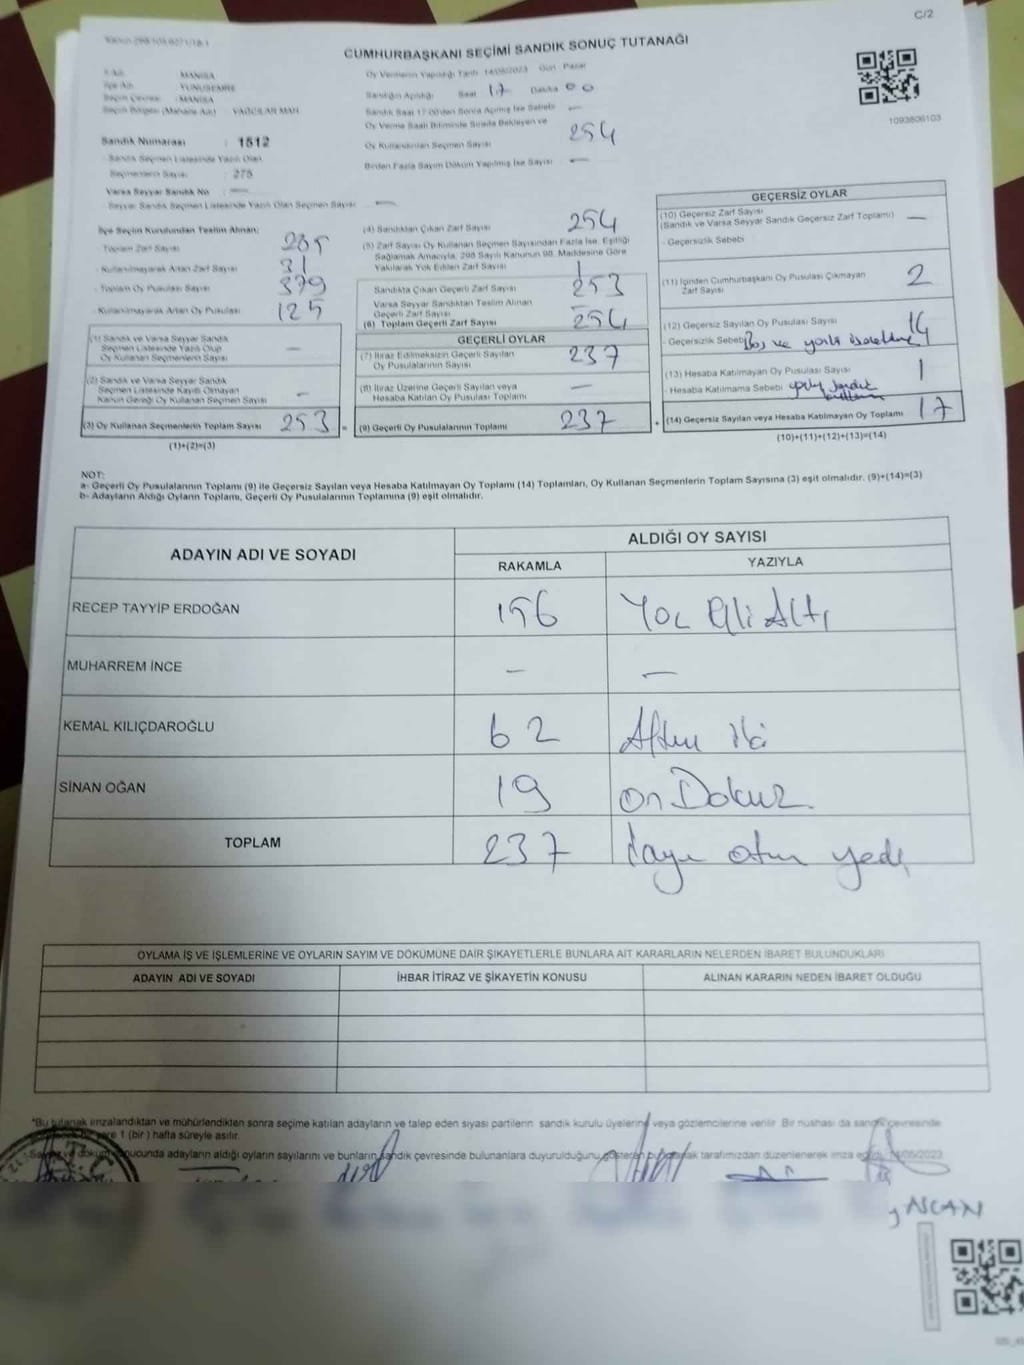 C/2
CUMHURBAŞKANI SEÇİMİ SANDIK SONUÇ TUTANAĞI
İl Adı : MANİSA
İlçe Adı : YUNUSEMRE
Seçim Çevresi : MANİSA
Seçim Bölgesi (Mahalle Adı) : YAĞCILAR MAH.
Sandık Numarası : 1512
Sandık Seçmen Listesinde Yazılı Olan
Seçmenlerin Sayısı : 275
Varsa Seyyar Sandık No : —
Seyyar Sandık Seçmen Listesinde Yazılı Olan Seçmen Sayısı : —
Oy Verilmenin Yapıldığı Tarih 14/05/2023 Gün : Pazar
Sandığın Açıldığı Saat 17 Dakika 00
Sandık Saat 17:00'den Sonra Açılmış İse Sebebi —
Oy Verme Saati Bitiminde Sırada Bekleyen ve
Oy Kullandırılan Seçmen Sayısı 254
Birden Fazla Sayım Döküm Yapılmış İse Sayısı —
1093806103
İlçe Seçim Kurulundan Teslim Alınan:
Toplam Zarf Sayısı 285
Kullanılmayarak Artan Zarf Sayısı 31
Toplam Oy Pusulası Sayısı 379
Kullanılmayarak Artan Oy Pusulası 125
(1) Sandık ve Varsa Seyyar Sandık
Seçmen Listesinde Yazılı Olup
Oy Kullanan Seçmenlerin Sayısı —
(2) Sandık ve Varsa Seyyar Sandık
Seçmen Listesinde Kayıtlı Olmayan
Kanun Gereği Oy Kullanan Seçmen Sayısı -
(3) Oy Kullanan Seçmenlerin Toplam Sayısı 253 =
(1)+(2)=(3)
(4) Sandıktan Çıkan Zarf Sayısı 254
(5) Zarf Sayısı Oy Kullanan Seçmen Sayısından Fazla İse, Eşitliği
Sağlamak Amacıyla, 298 Sayılı Kanunun 98. Maddesine Göre
Yakılarak Yok Edilen Zarf Sayısı 1
Sandıkta Çıkan Geçerli Zarf Sayısı 253
Varsa Seyyar Sandıktan Teslim Alınan
Geçerli Zarf Sayısı —
(6) Toplam Geçerli Zarf Sayısı 254
GEÇERLİ OYLAR
(7) İtiraz Edilmeksizin Geçerli Sayılan
Oy Pusulalarının Sayısı 237
(8) İtiraz Üzerine Geçerli Sayılan veya
Hesaba Katılan Oy Pusulası Toplamı —
(9) Geçerli Oy Pusulalarının Toplamı 237 +
GEÇERSİZ OYLAR
(10) Geçersiz Zarf Sayısı
(Sandık ve Varsa Seyyar Sandık Geçersiz Zarf Toplamı) —
- Geçersizlik Sebebi
(11) İçinden Cumhurbaşkanı Oy Pusulası Çıkmayan
Zarf Sayısı 2
(12) Geçersiz Sayılan Oy Pusulası Sayısı 14
- Geçersizlik Sebebi Boş ve
(13) Hesaba Katılmayan Oy Pusulası Sayısı 1
- Hesaba Katılmama Sebebi
(14) Geçersiz Sayılan veya Hesaba Katılmayan Oy Toplamı 17
(10)+(11)+(12)+(13)=(14)
NOT:
a- Geçerli Oy Pusulalarının Toplamı (9) ile Geçersiz Sayılan veya Hesaba Katılmayan Oy Toplamı (14) Toplamları, Oy Kullanan Seçmenlerin Toplam Sayısına (3) eşit olmalıdır. (9)+(14)=(3)
b- Adayların Aldığı Oyların Toplamı, Geçerli Oy Pusulalarının Toplamına (9) eşit olmalıdır.
ADAYIN ADI VE SOYADI
ALDIĞI OY SAYISI
RAKAMLA YAZIYLA
RECEP TAYYİP ERDOĞAN 156 Yüz Elli Altı
MUHARREM İNCE — —
KEMAL KILIÇDAROĞLU 62 Altmış iki
SİNAN OĞAN 19 On Dokuz
TOPLAM 237 otuz yedi
OYLAMA İŞ VE İŞLEMLERİNE VE OYLARIN SAYIM VE DÖKÜMÜNE DAİR ŞİKAYETLERLE BUNLARA AİT KARARLARIN NELERDEN İBARET BULUNDUKLARI
ADAYIN ADI VE SOYADI İHBAR İTİRAZ VE ŞİKAYETİN KONUSU ALINAN KARARIN NEDEN İBARET OLDUĞU
*Bu tutanak imzalandıktan ve mühürlendikten sonra seçime katılan adayların ve talep eden siyasi partilerin sandık kurulu üyelerine veya gözlemcilerine verilir. Bir nüshası da sandık çevresinde
yere 1 (bir) hafta süreyle asılır.
Sayım ve döküm sonucunda adayların aldığı oyların sayılarını ve bunların sandık çevresinde bulunanlara duyurulduğunu gösteren bu tutanak tarafımızdan düzenlenerek imza edildi. 14/05/2023
T.C.